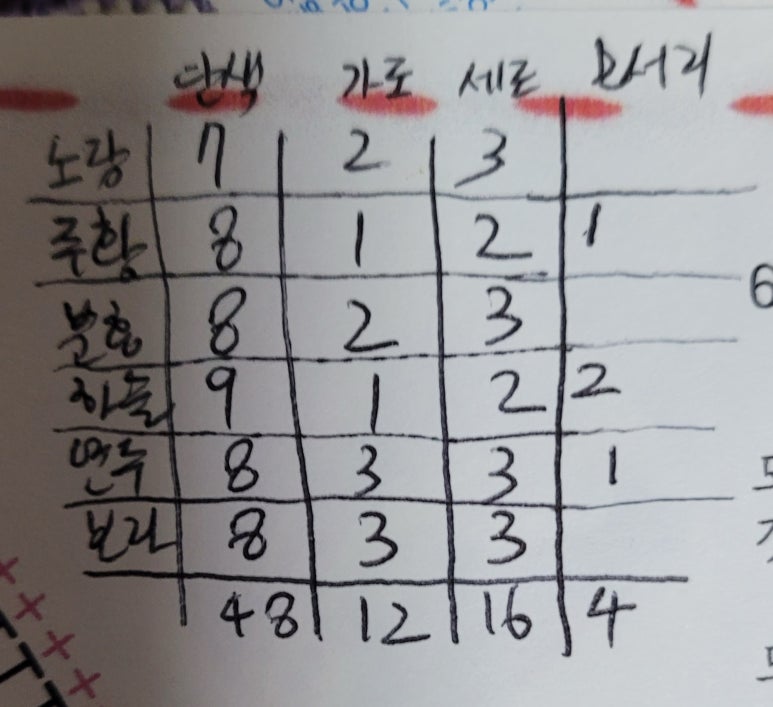 단색 가로 세로 모서리
노랑 7 2 3
주황 8 1 2 1
분홍 8 2 3
하늘 9 1 2 2
연두 8 3 3 1
보라 8 3 3
48 12 16 4
6